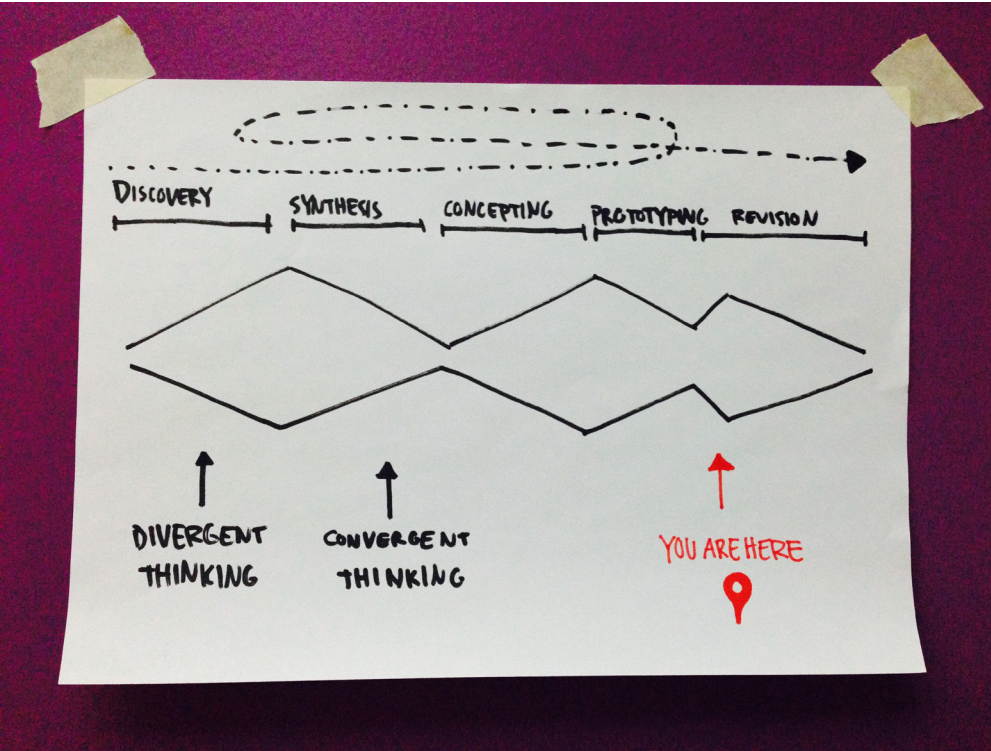 DISCOVERY
SYNTHESIS
CONCEPTING
PROTOTYPING
REVISION
DIVERGENT
THINKING
CONVERGENT
THINKING
YOU ARE HERE